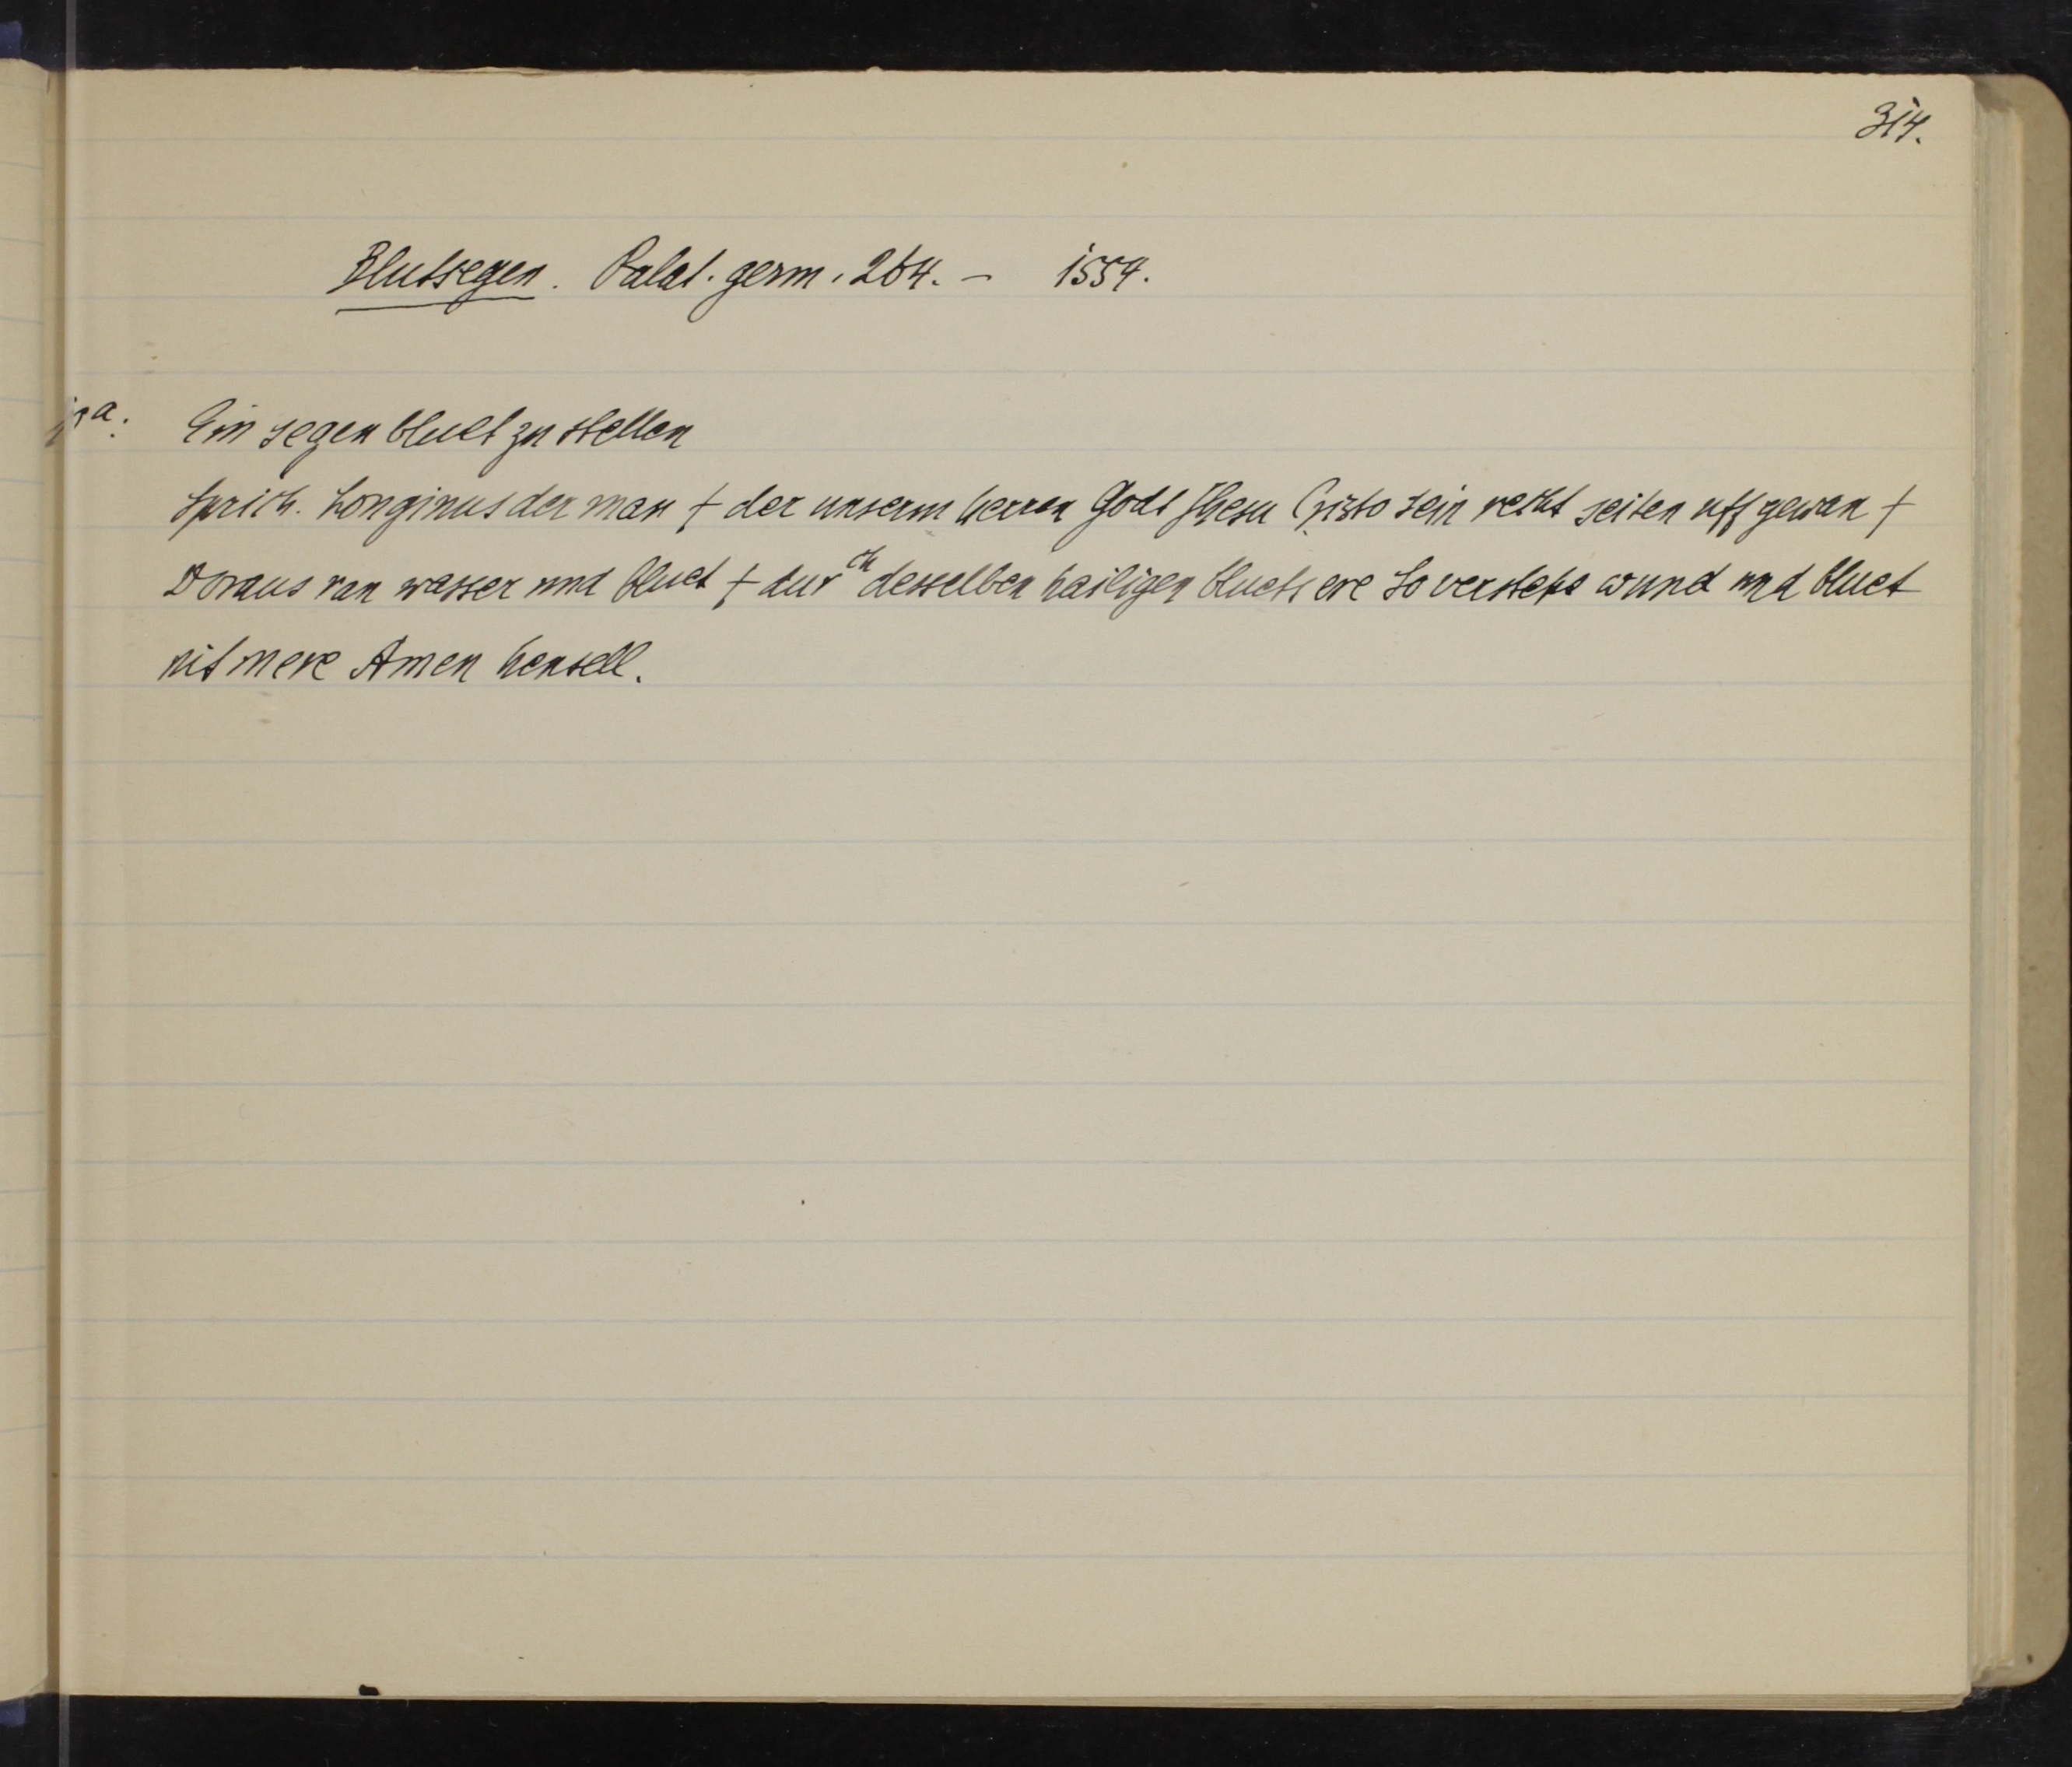 314.
Blutsegen. Palat. germ. 264. - 1554.
Ein segen bluet zu stellen
Sprich. Longinus der man † der unserm herren Godt Jhesu Cristo sein recht seiten uff gewan †
Doraus ran wasser und bluet † durch desselben hailigen bluets ere So verstehe wund und bluet
nit mere Amen hensell.